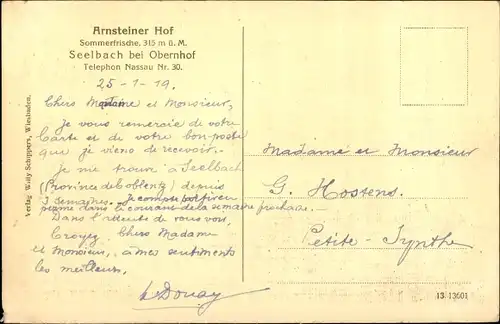 Arnsteiner Hof
Sommerfrische. 315 m ü. M.
Seelbach bei Obernhof
Telephon Nassau Nr. 30.
25-1-19.
Chers Madame et Monsieur,
je vous remercie de votre
Carte et de votre bon-poste
que je viens de recevoir.
je me trouve à Seelbach
(Province de Coblentz) depuis
3 semaines. Je compte
dans le courant de la semaine prochaine.
Dans l'attente de vous voir,
Croyez Chers Madame
et Monsieur, à mes sentiments
les meilleurs.
Douay
Madame et Monsieur
G. Hostens.
Petite-Synthe
Verlag Willy Schippers, Wiesbaden.
13 13601